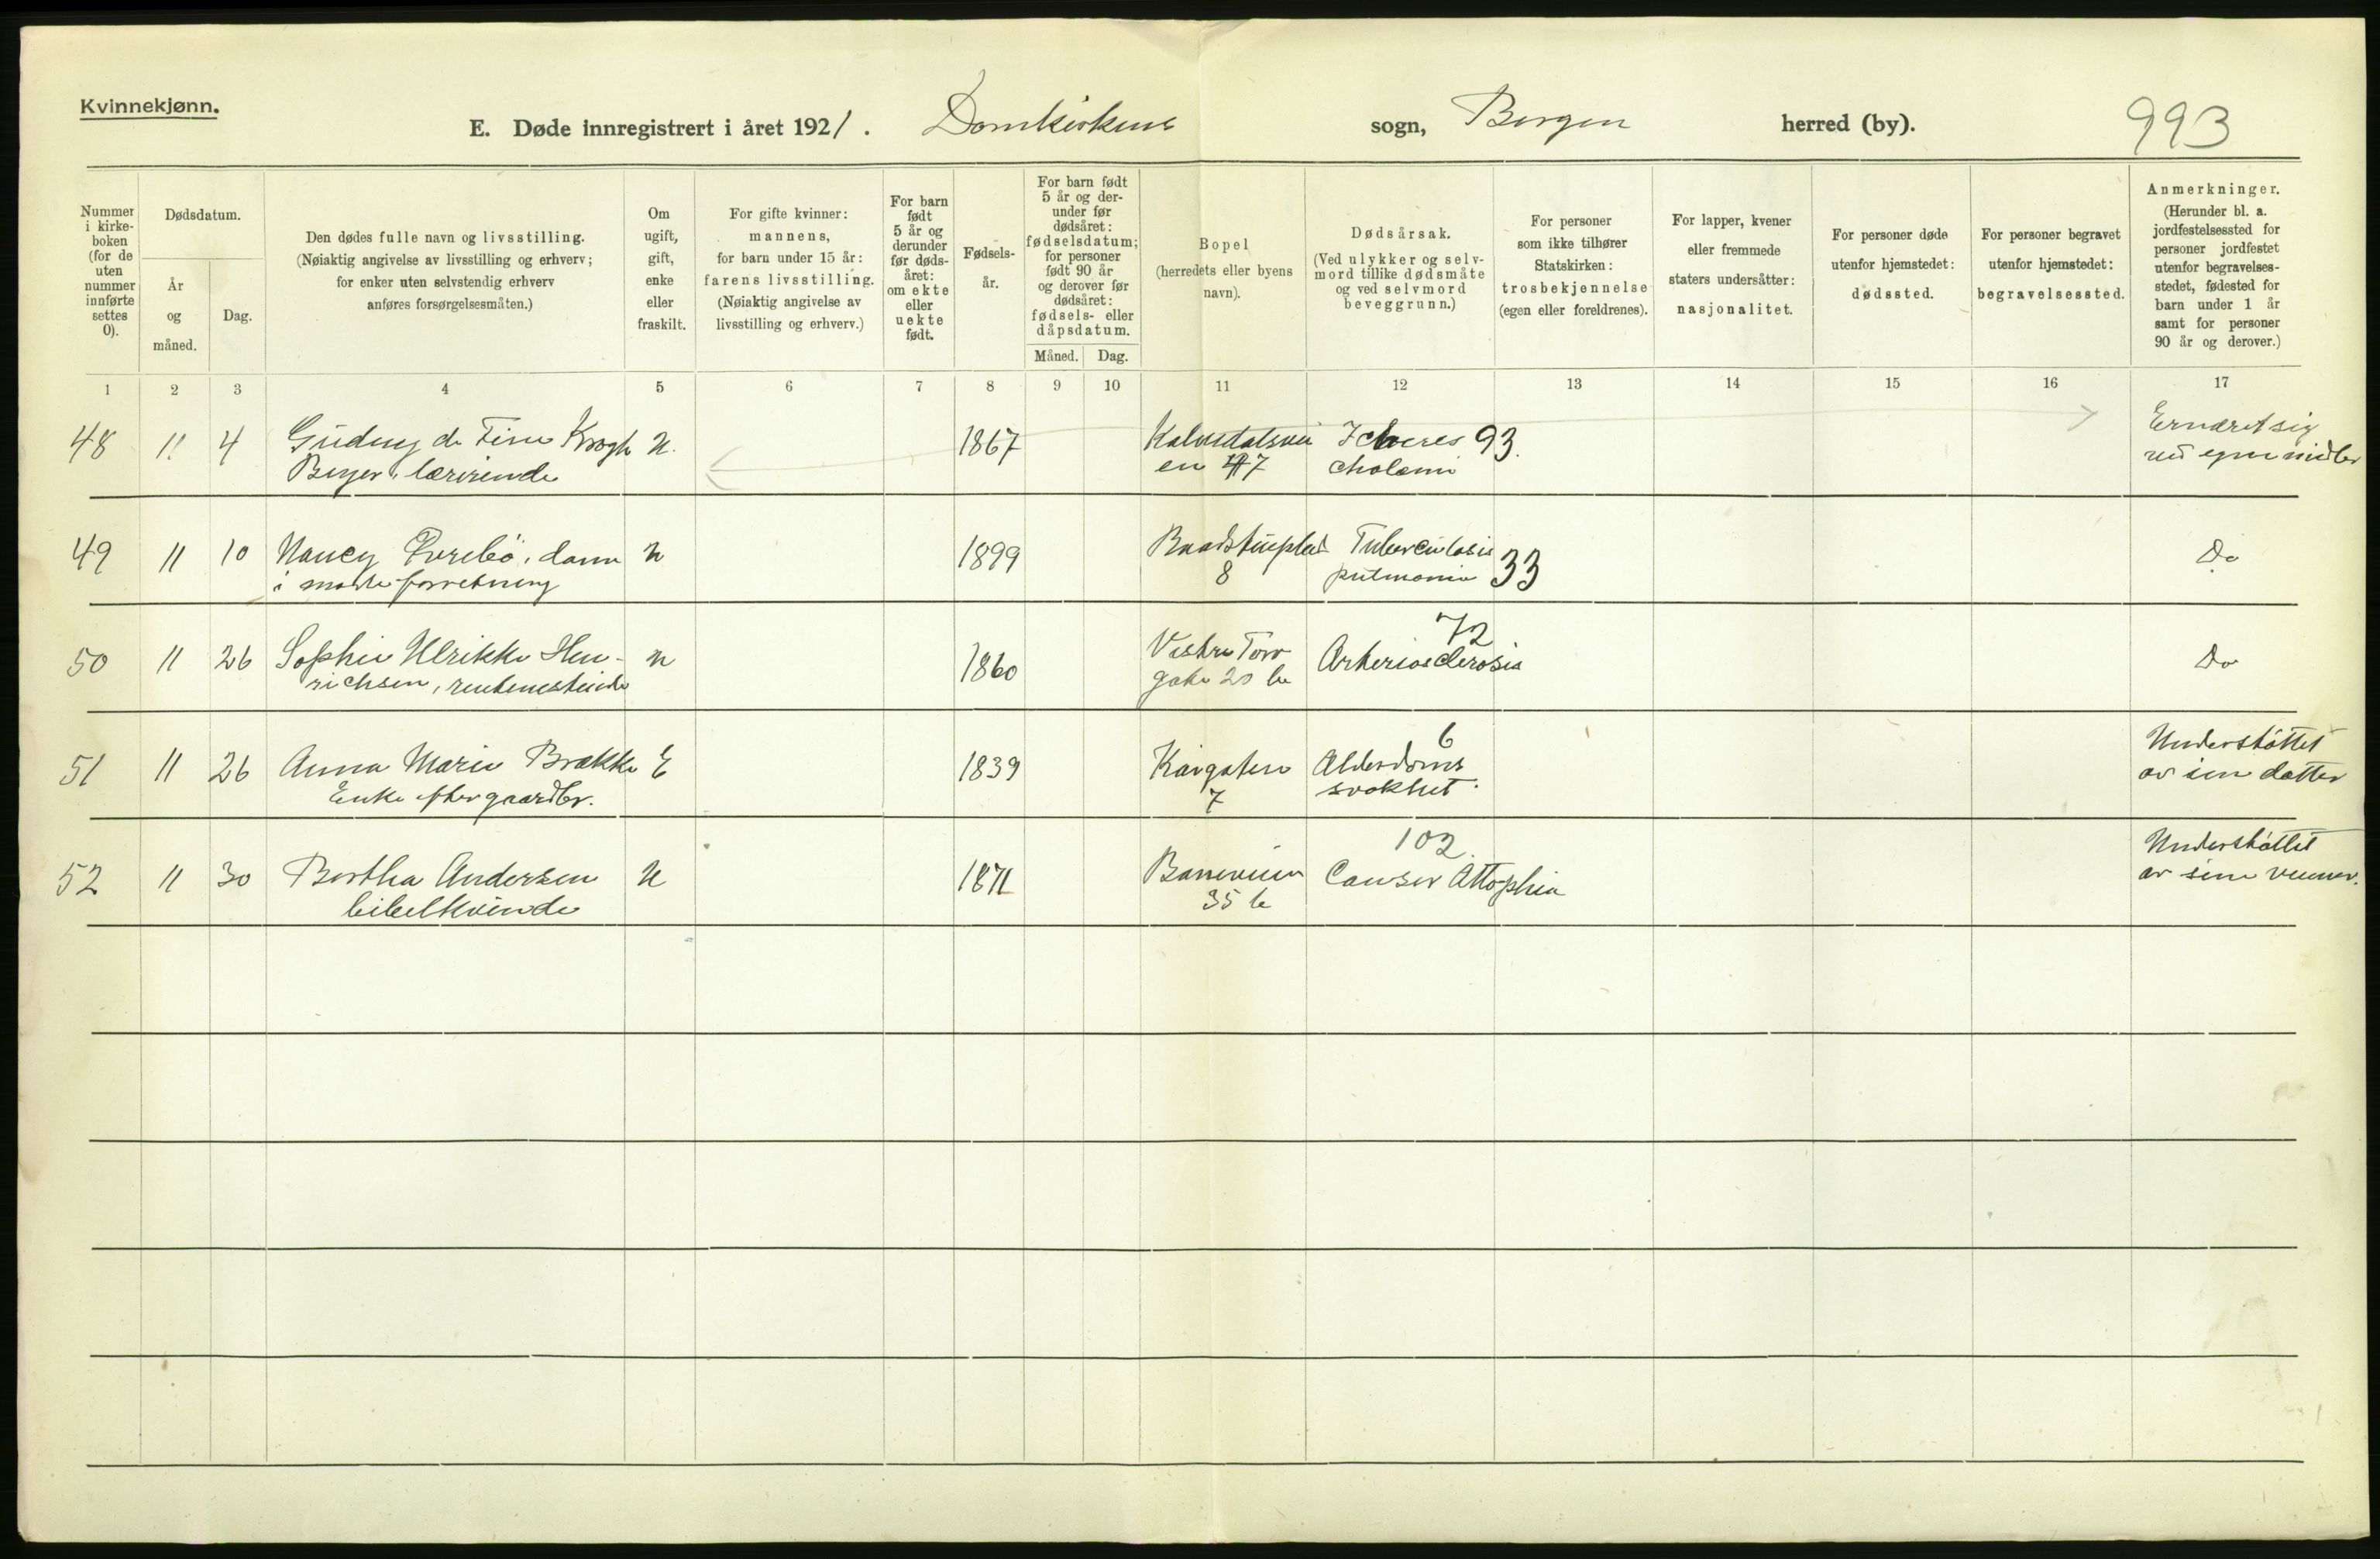 Kvinnekjønn.
E. Døde innregistrert i året 1921. Domkirkens sogn, Bergen herred (by). 993
Nummer i kirkeboken (for de uten nummer innførte settes 0).
Dødsdatum.
År og måned.
Dag.
Den dødes fulle navn og livsstilling.
(Nøiaktig angivelse av livsstilling og erhverv;
for enker uten selvstendig erhverv
anføres forsørgelsesmåten.)
Om
ugift,
gift,
enke
eller
fraskilt.
For gifte kvinner:
mannens,
for barn under 15 år:
farens livsstilling.
(Nøiaktig angivelse av
livsstilling og erhverv.)
For barn
født
5 år og
derunder
før døds-
året:
om ekte
eller
uekte
født.
Fødsels-
år.
For barn født
5 år og der-
under før
dødsåret:
fødselsdatum;
for personer
født 90 år
og derover før
dødsåret:
fødsels- eller
dåpsdatum.
Måned. Dag.
Bopel
(herredets eller byens
navn).
Dødsårsak.
(Ved ulykker og selv-
mord tillike dødsmåte
og ved selvmord
beveggrunn.)
For personer
som ikke tilhører
Statskirken:
trosbekjennelse
(egen eller foreldrenes).
For lapper, kvener
eller fremmede
staters undersåtter:
nasjonalitet.
For personer døde
utenfor hjemstedet:
dødssted.
For personer begravet
utenfor hjemstedet:
begravelsessted.
Anmerkninger.
(Herunder bl. a.
jordfestelsessted for
personer jordfestet
utenfor begravelses-
stedet, fødested for
barn under 1 år
samt for personer
90 år og derover.)
1 2 3 4 5 6 7 8 9 10 11 12 13 14 15 16 17
48 11 4 Gudny de Fine Krogh U. 1867 93. Ernæret sig
Beyer, lærerinde en 47 Cholæmi ved egne midler
49 11 10 Nancy dame U 1899 8 Tuberculosis 33 Do
i moteforretning
50 11 26 Sophie Ulrikke Hen- U 1860 Vestre Torv 72 Arteriosclerosis Do
richsen, gate 20
51 11 26 Anna Marie Brække E 1839 Kaigaten 6 Alderdoms Understöttet
Enke efter gaardbr. 7 svakhet. av sin datter
52 11 30 Bertha Andersen U 1871 102. Cancer Understöttet
bibelkvinde 35 av sine venner.